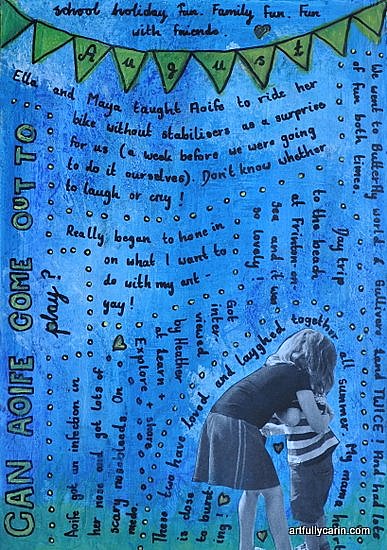 school holiday Fun. Family Fun. Fun
with friends.
August
Ella and Maya taught Aoife to ride her
bike without stabilisers as a surprise
for us (a week before we were going
to do it ourselves). Don't know whether
to laugh or cry!
We went to Butterfly world & Gullivers Land TWICE! And had lots
of fun both times.
Day trip
to the beach
at Frinton-on-
Sea and it was
so lovely!
Really began to hone in
on what I want to
do with my art -
yay!
CAN AOIFE COME OUT TO
play?
Got
inter
viewed
by Heather
at Learn +
Explore + share
Aoife got an infection in
her nose and got lots of
scary nosebleeds. On
meds.
These two have loved and laughed together all summer. My mommy
is close
to burst
ing!
artfullycarin.com